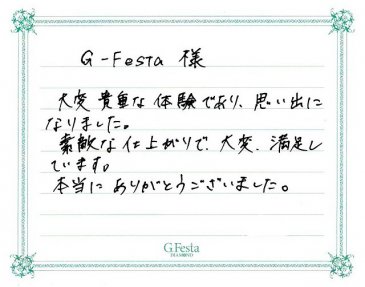 G-Festa 様
大変貴重な体験であり、思い出に
なりました。
素敵な仕上がりで、大変、満足し
ています。
本当にありがとうございました。
G.Festa
DIAMOND